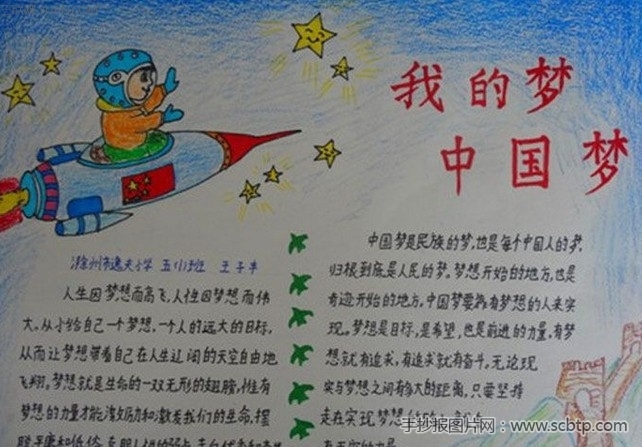 我的梦
中国梦
滁州市逸夫小学 五(1)班 王子丰
人生因梦想而高飞,人性因梦想而伟
大。从小给自己一个梦想,一个人的远大的目标,
从而让梦想带着自己在人生辽阔的天空自由地
飞翔。梦想就是生命的一双无形的翅膀,惟有
梦想的力量才能激发我们的生命,摆
中国梦是民族的梦,也是每个中国人的梦
归根到底是人民的梦。梦想开始的地方,也是
奇迹开始的地方。中国梦要靠有梦想的人来实
现。梦想是目标,是希望,也是前进的力量。有梦
想就有追求,有追求就有奋斗。无论现
实与梦想之间有多大的距离,只要坚持
走在实现梦想的路上
手抄报图片网
www.scbtp.com